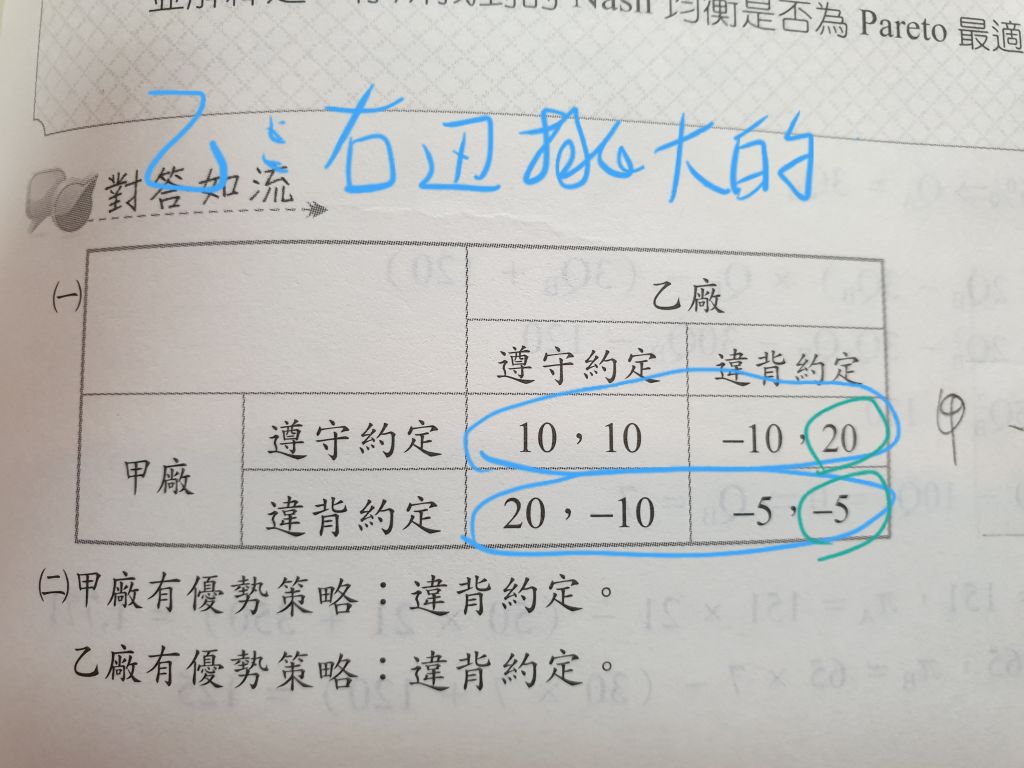 Nash 均衡是否為 Pareto 最適
乙：右边挑大的
對答如流
㈠
乙廠
遵守約定 違背約定
甲廠
遵守約定 10，10 −10，20
違背約定 20，−10 −5，−5
甲
㈡甲廠有優勢策略：違背約定。
乙廠有優勢策略：違背約定。